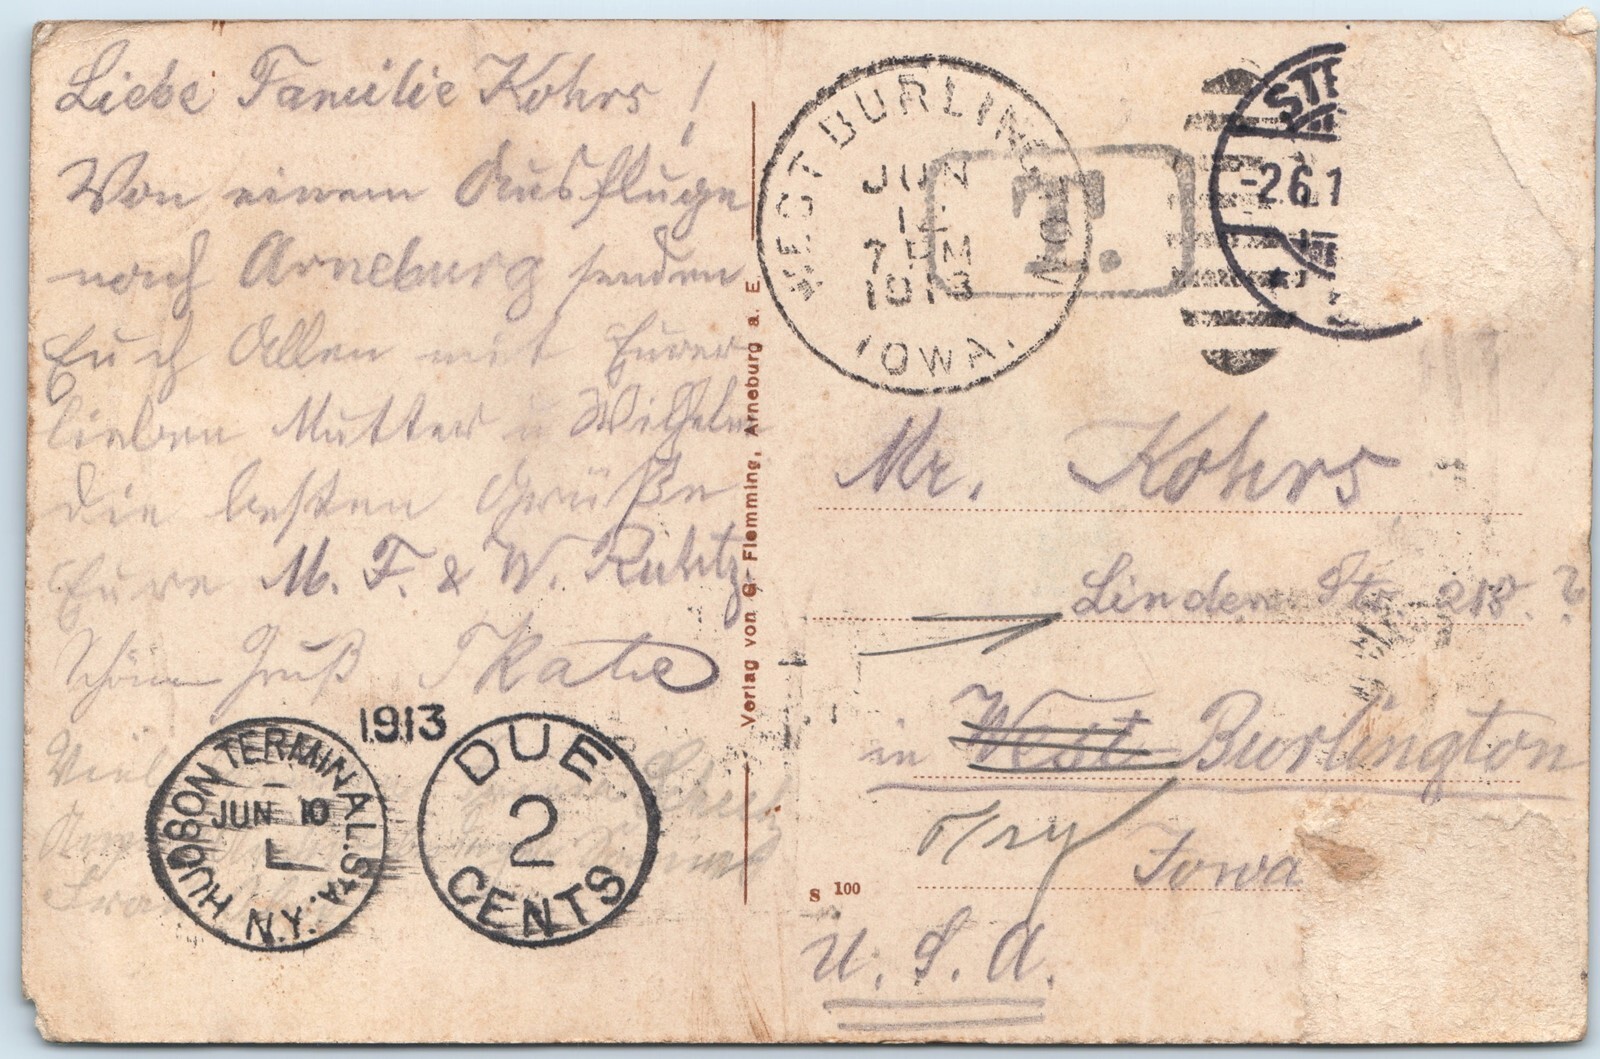 Liebe Familie Kohrs!
Von einem Ausfluge
nach Arneburg senden
Euch Allen mit Eurer
lieben Mutter u Wilhelm
die besten Grüße
Eure M. F. & W.
Schönen Gruß
Viele
Verlag von G. Flemming, Arneburg a. E.
WEST BURLINGTON
JUN
7 PM
1913
IOWA.
T.
STE
-2.6.1
Mr. Kohrs
Linden Str. 218.?
in West Burlington
Iowa
U. S. A.
S 100
HUDSON TERMINAL STA.
JUN 10
N.Y.
1913
DUE
2
CENTS